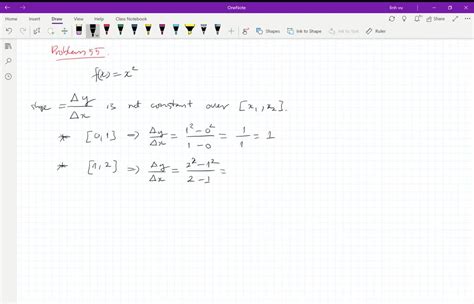 OneNote
linh vu
File Home Insert Draw View Help Class Notebook
Shapes Ink to Shape Ink to Text Math Ruler
Problem 55.
f(x) = x²
slope = Δy/Δx is not constant over [x₁, x₂].
* [0,1] ⇒ Δy/Δx = (1² − 0²)/(1 − 0) = 1/1 = 1
* [1,2] ⇒ Δy/Δx = (2² − 1²)/(2 − 1) =